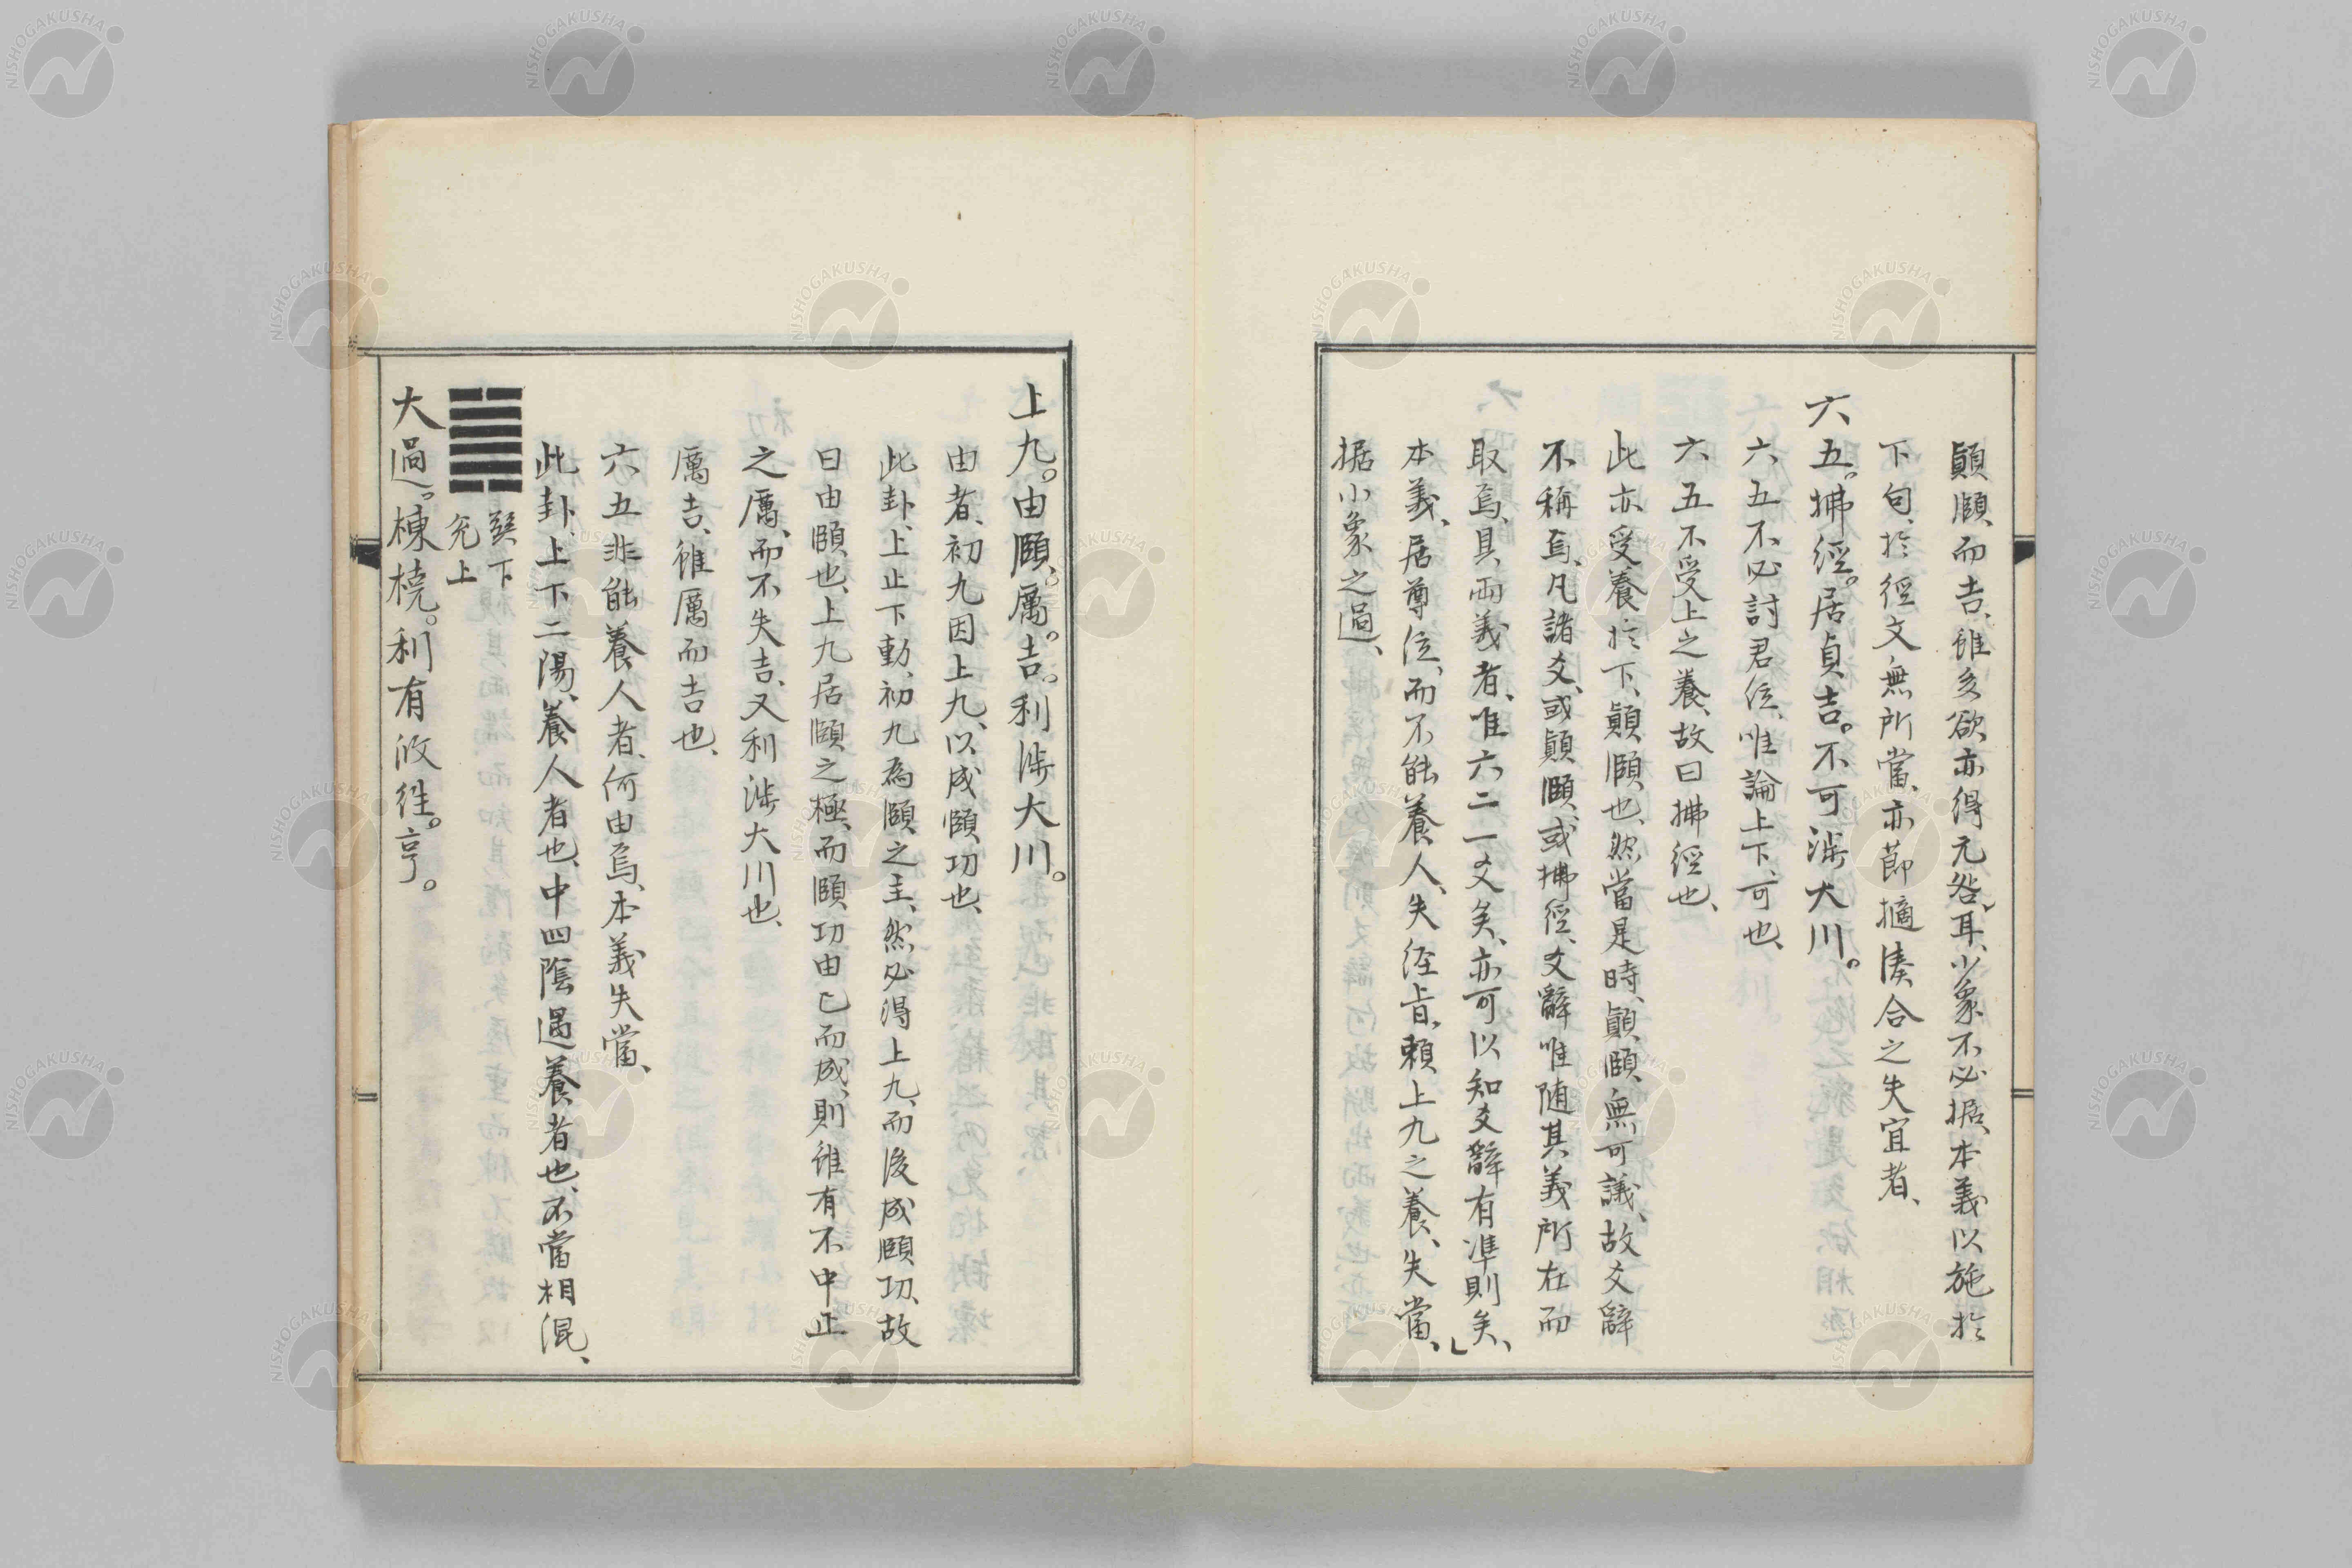 顚頤而吉、雖多欲、亦得无咎耳、小象不必據、本義以施於
下句、於經文無所當、亦節擿湊合之失宜者、
六五。拂經。居貞吉。不可涉大川。
六五不必討君位、唯論上下、可也、
六五不受上之養、故曰拂經也、
此亦受養於下、顚頤也、然當是時、顚頤無可議、故爻辭
不稱焉、凡諸爻、或顚頤、或拂經、文辭唯随其義所在而
取焉、具兩義者、唯六二一爻矣、亦可以知爻辭有準則矣、
本義、居尊位、而不能養人、失經旨、賴上九之養、失當、
据小象之過、
上九。由頤。厲。吉。利涉大川。
由者、初九因上九、以成頤功也、
此卦、上止下動、初九為頤之主、然必得上九、而後成頤功、故
曰由頤也、上九居頤之極、而頤功由已而成、則雖有不中正
之厲、而不失吉、又利涉大川也、
厲吉、雖厲而吉也、
六五非能養人者、何由焉、本義失當、
此卦、上下二陽、養人者也、中四陰遇養者也、不當相混、
巽下
兌上
大過。棟橈。利有攸往。亨。
NISHOGAKUSHA